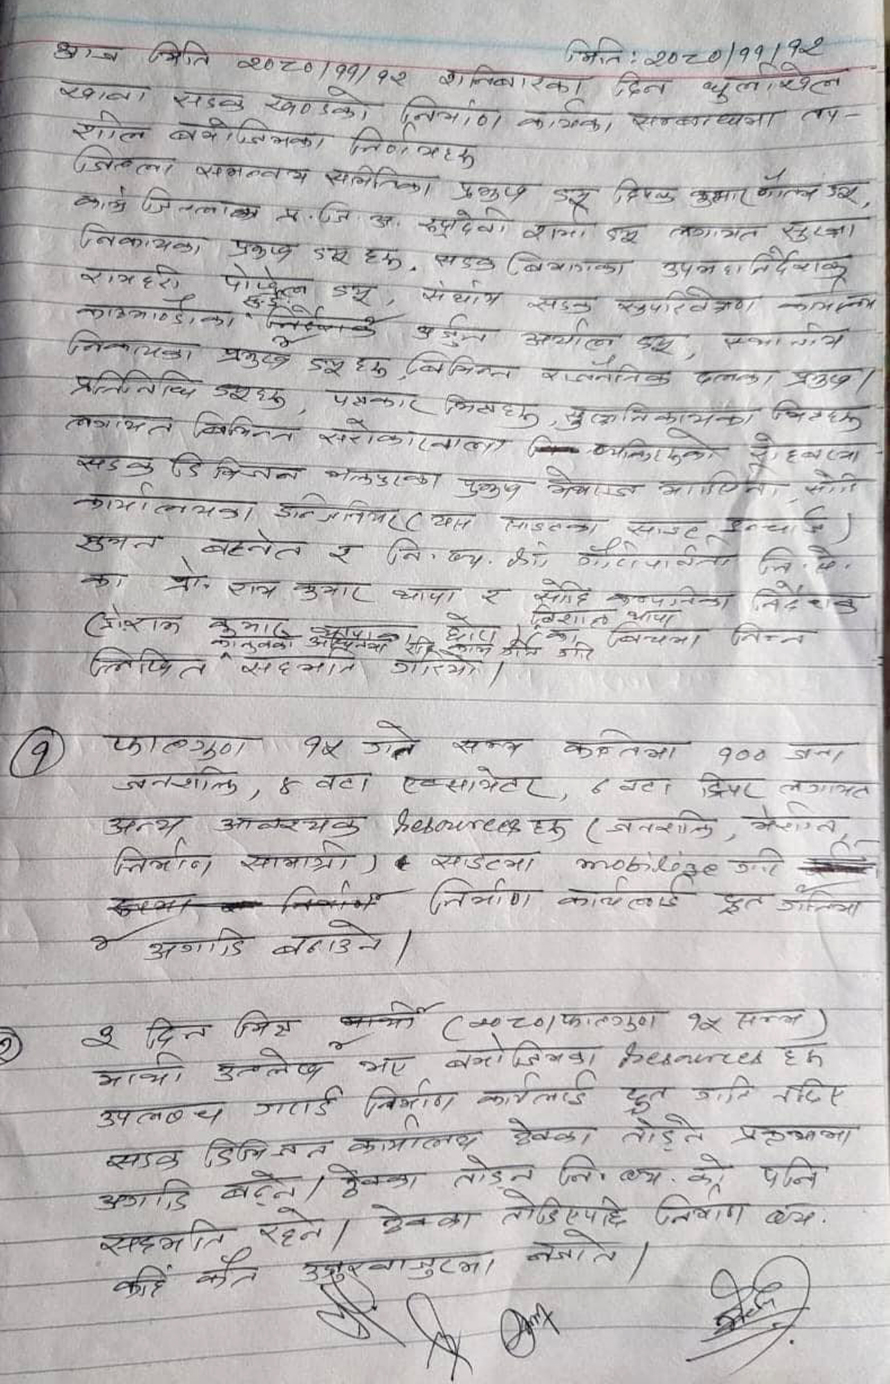 मिति: २०८०/११/१२
आज मिति २०८०/११/१२ शनिबारका दिन धुलीखेल
खावा सडक खण्डको निर्माण कार्यका सम्बन्धमा तप-
शील बमोजिमका निर्णयहरु
जिल्ला समन्वय समितिका प्रमुख ज्यू दिपक कुमार गौतम ज्यू,
काभ्रे जिल्लाका प्र. जि. अ. रुद्रादेवी शर्मा ज्यू लगायत सुरक्षा
निकायका प्रमुख ज्यू हरु, सडक बिभागका उपमहानिर्देशक
रामहरी पोखेल ज्यू, संघीय सडक सुपरिवेक्षण कार्यालय
काठमाण्डौका अर्जुन अर्याल ज्यू, स्थानीय
निकायका प्रमुख ज्यू हरु, बिभिन्न राजनैतिक दलका प्रमुख /
प्रतिनिधि ज्यूहरु, पत्रकार मित्रहरु, सुरक्षा निकायका मित्रहरु
लगायत बिभिन्न सरोकारवाला व्यक्तिहरुको रोहबरमा
सडक डिभिजन भक्तपुरका प्रमुख सोहि
कार्यालयका इन्जिनियर (यस साइटका साइट इन्चार्ज)
सुमन बस्नेत र नि. व्य. श्री गौरीपार्वती नि. से.
का प्रो. राम कुमार थापा र सोहि कम्पनिका निर्देशक
विशाल थापा
प्रो. राम कुमार थापा का बिचमा निम्न
लिखित सहमति गरियो।
१ फाल्गुण १५ गते सम्म कम्तिमा १०० जना
जनशक्ति, ४ वटा एक्साभेटर, ६ वटा टिपर लगायत
अन्य आवश्यक Resources हरु (जनशक्ति, मेशिन,
निर्माण सामाग्री) साइटमा mobilize गरि
निर्माण कार्यलाई द्रुत गतिमा
अगाडि बढाउने।
२ ३ दिन भित्र (२०८०/फाल्गुण १५ सम्म)
माथी उल्लेख भए बमोजिमका Resources हरु
उपलब्ध गराई निर्माण कार्यलाई द्रुत गति नदिए
सडक डिभिजन कार्यालय ठेक्का तोड्ने प्रकृयामा
अगाडि बढ्ने। ठेक्का तोड्न नि. व्य. को पनि
सहमति रहने। ठेक्का तोडिएपछि निर्माण व्य.
कहिं कतै उजुरबाजुरमा नजाने।